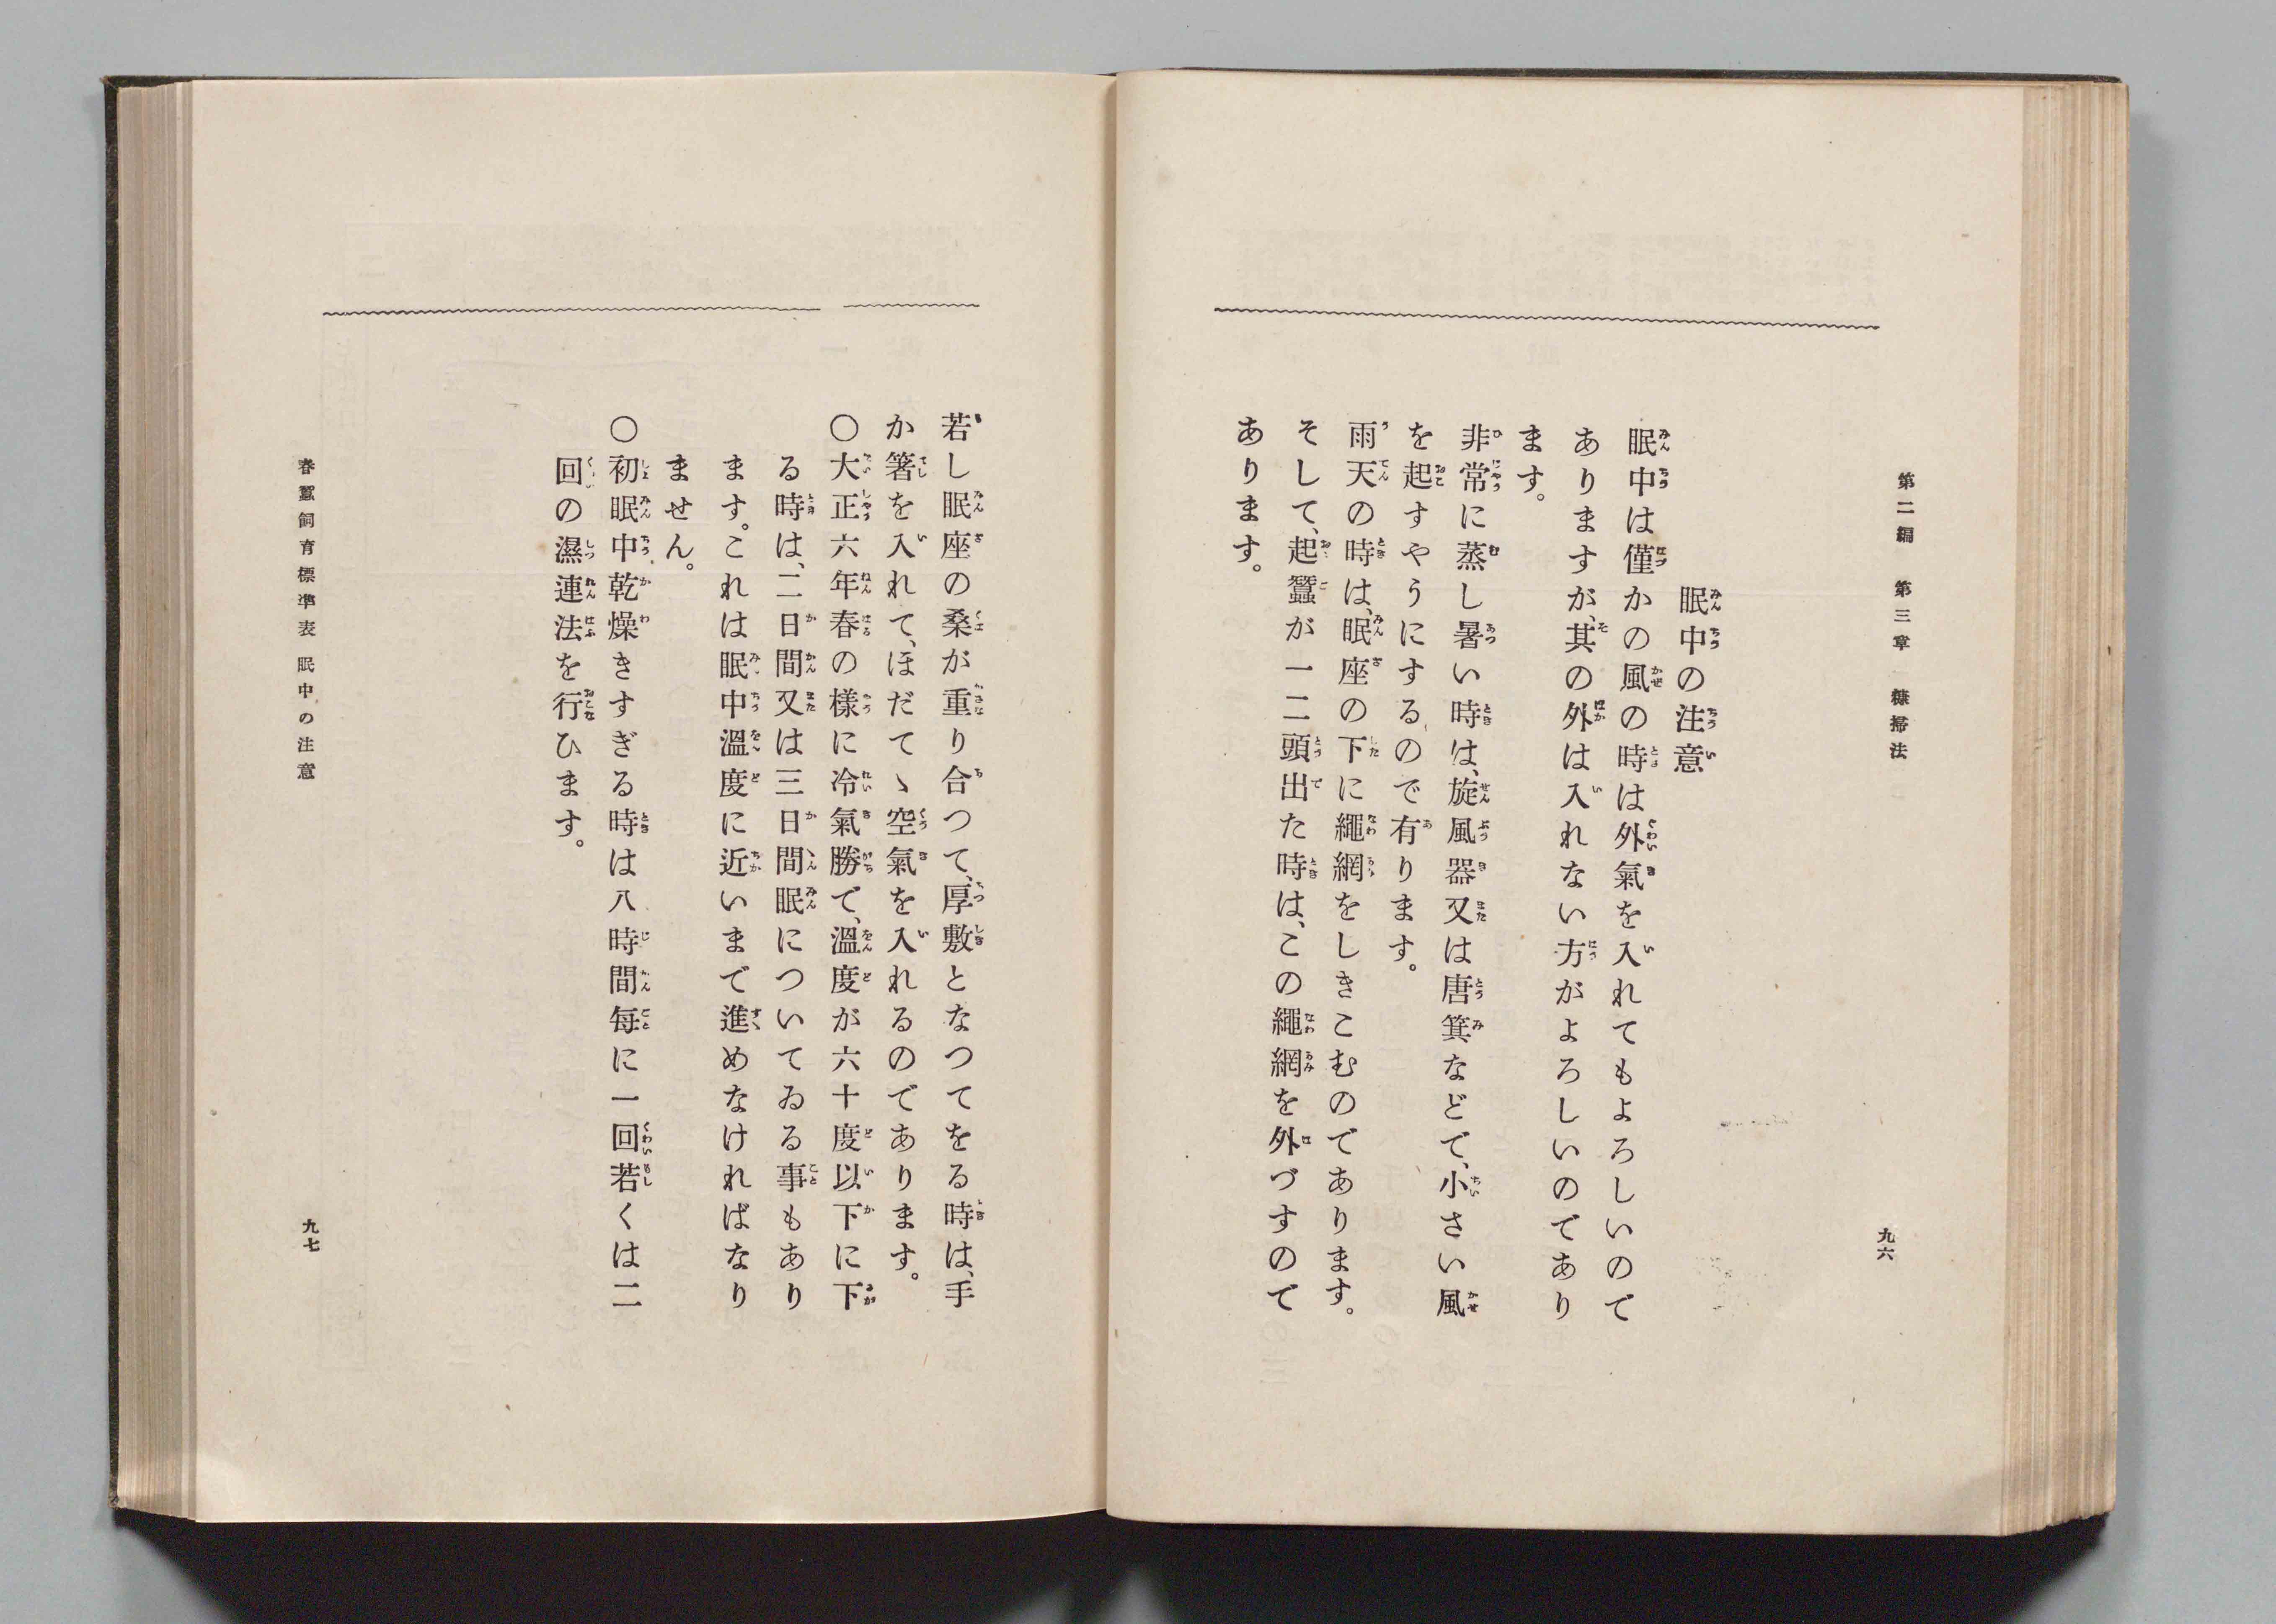 第二編　第三章　糠掃法
九六
眠中の注意
眠中は僅かの風の時は外氣を入れてもよろしいので
ありますが、其の外は入れない方がよろしいのであり
ます。
非常に蒸し暑い時は、旋風器又は唐箕などで、小さい風
を起すやうにするので有ります。
雨天の時は、眠座の下に繩網をしきこむのであります。
そして、起蠶が一二頭出た時は、この繩網を外づすので
あります。
若し眠座の桑が重り合つて、厚敷となつてをる時は、手
か箸を入れて、ほだてゝ空氣を入れるのであります。
〇大正六年春の樣に冷氣勝で、溫度が六十度以下に下
る時は、二日間又は三日間眠についてゐる事もあり
ます。これは眠中溫度に近いまで進めなければなり
ません。
〇初眠中乾燥きすぎる時は八時間每に一回若くは二
回の濕連法を行ひます。
春蠶飼育標準表　眠中の注意
九七